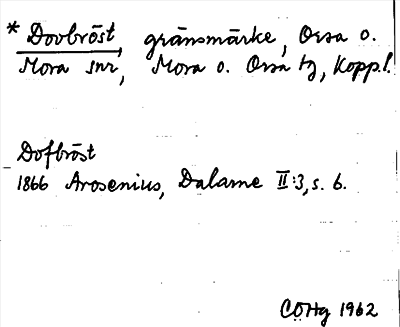 * Dovbröst, gränsmärke, Orsa o.
Mora snr, Mora o. Orsa tg, Kopp.l.
Dofbröst
1866 Arosenius, Dalarne II:3, s. 6.
CÖHg 1962